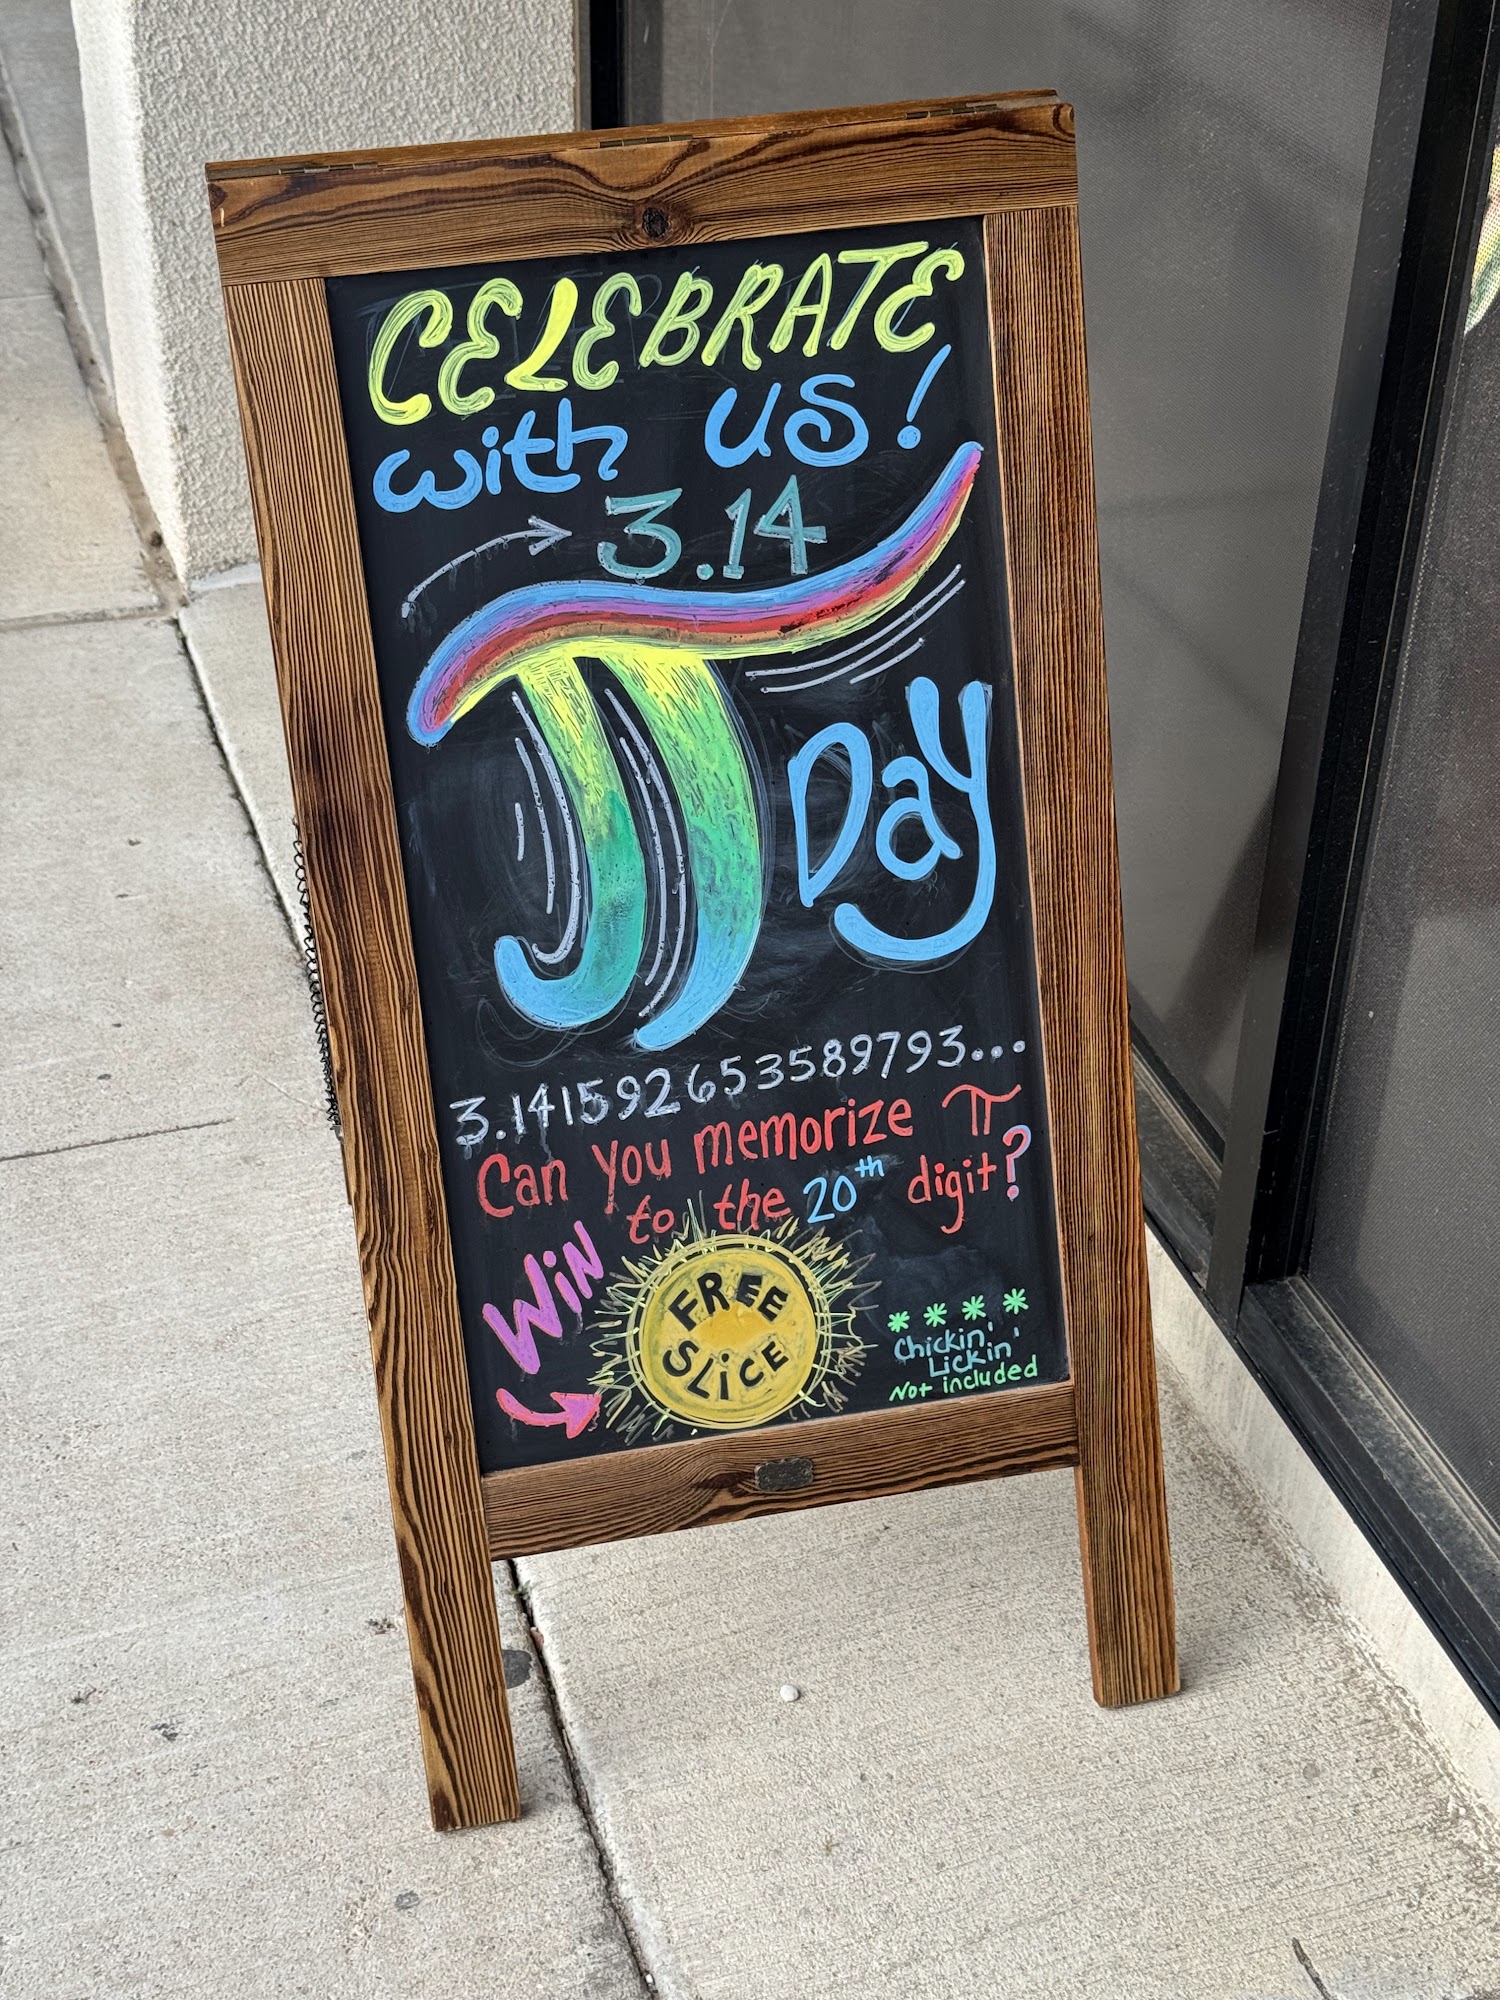 CELEBRATE
with us!
3.14
π Day
3.141592653589793...
Can you memorize π
to the 20th digit?
WiN
FREE
SLiCE
****
Chickin'
Lickin'
Not included